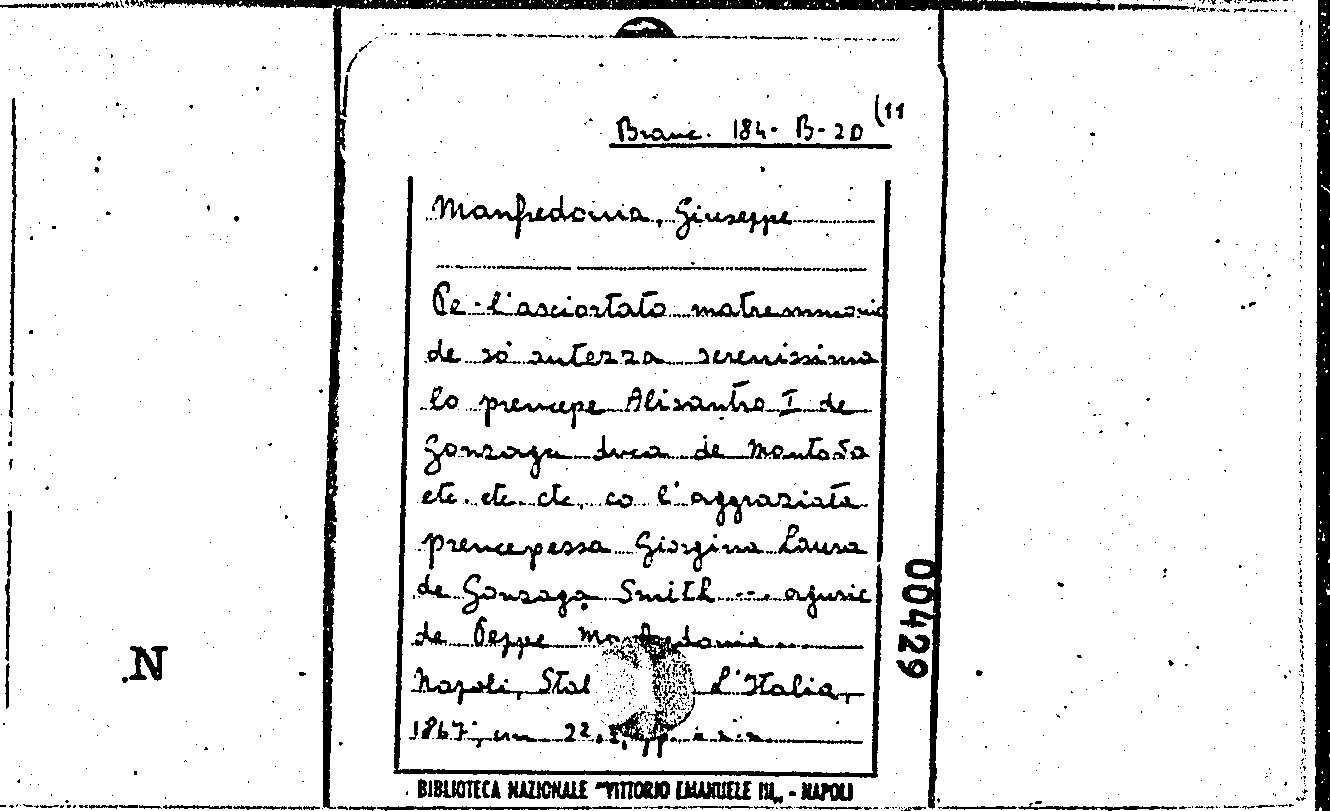 Branc. 184- B-20 (11
Manfredonia, Giuseppe
Pe l'asciortato matremmonio
de só autezza serenissima
lo prencepe Alisantro I de
Gonzaga duca de Montova
etc. etc. etc. co l'aggraziata
prencepessa Giorgina Laura
de Gonzaga Smith ... agurie
de Peppe Manfredonia
Napoli, Stab L'Italia,
1867, cm 22,
BIBLIOTECA NAZIONALE "VITTORIO EMANUELE III" - NAPOLI
00429
N